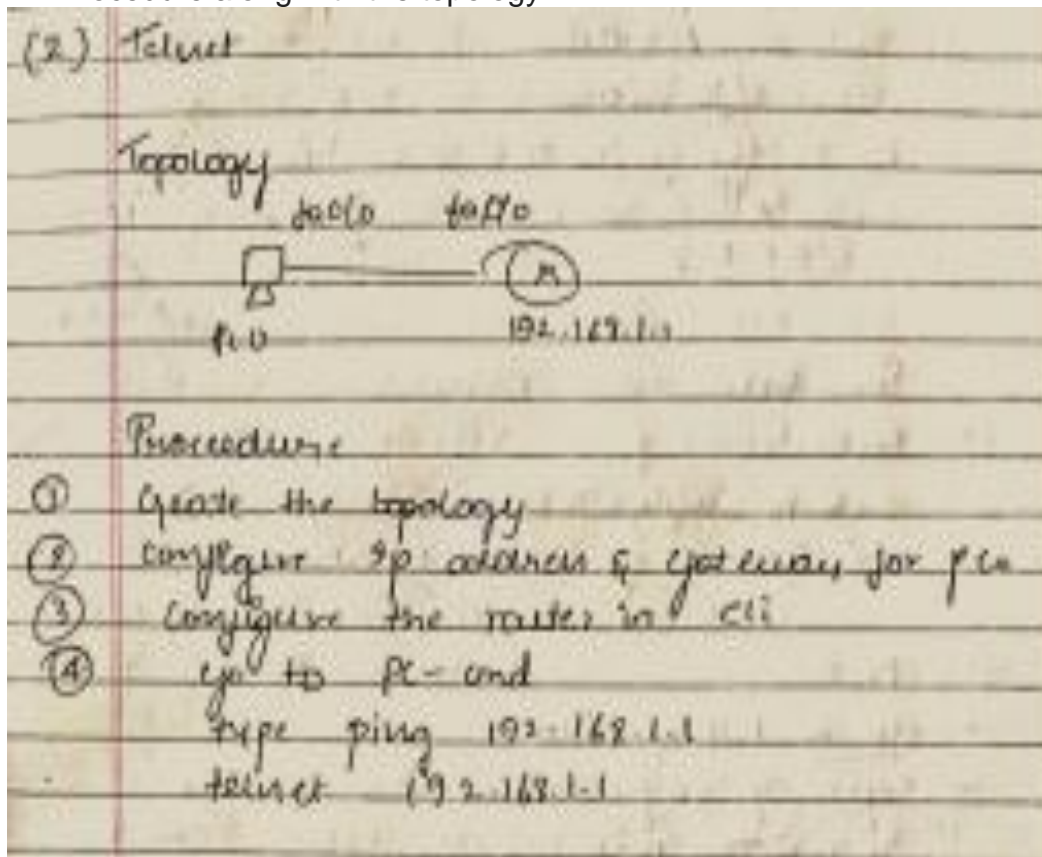 Procedure along with the topology
(2) Telnet
Topology
fa0/0 fa0/0
R
192.168.1.1
Procedure
① Create the topology
② configure Ip address & gateway for
③ configure the router in cli
④ go to PC - cmd
type ping 192.168.1.1
telnet 192.168.1.1